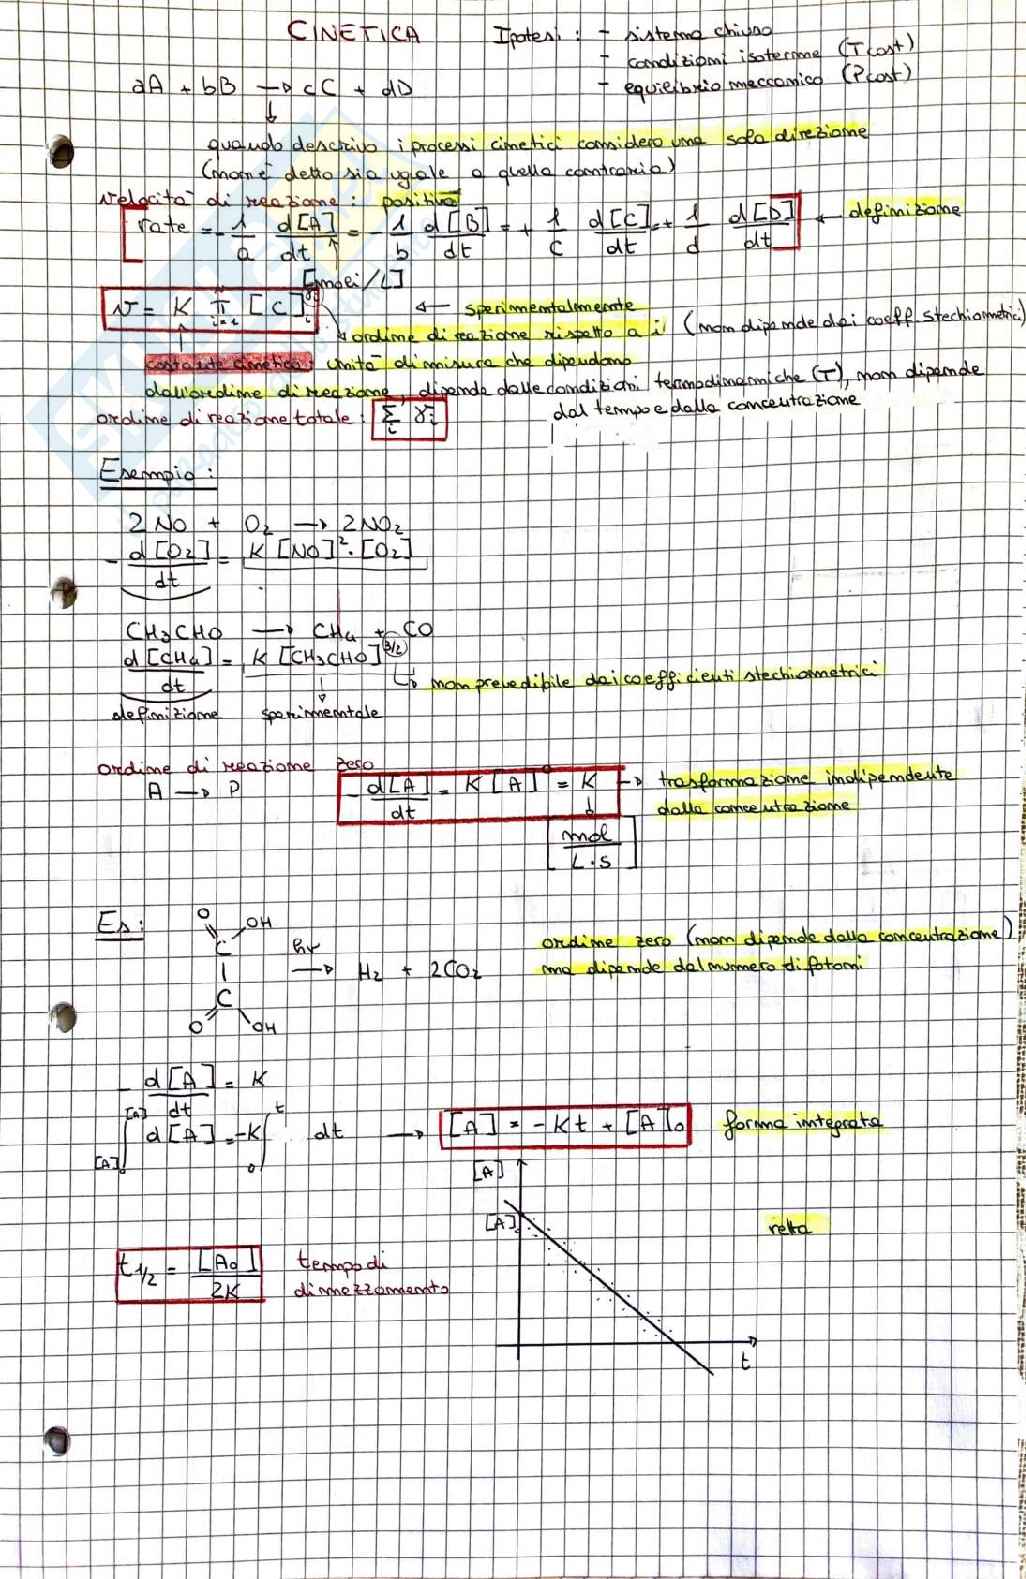 CINETICA Ipotesi : - sistema chiuso
- condizioni isoterme (T cost)
- equilibrio meccanico (P cost)
aA + bB → cC + dD
quando descrivo i processi cinetici considero una sola direzione
(non è detto sia uguale a quella contraria)
velocità di reazione : positiva
rate = - 1/a d[A]/dt = - 1/b d[B]/dt = + 1/c d[C]/dt = + 1/d d[D]/dt ← definizione
[moli/L]
v = K π i=i [C]i γi ← sperimentalmente
ordine di reazione rispetto a i (non dipende dai coeff. stechiometrici)
costante cinetica: unità di misura che dipendono
dall'ordine di reazione, dipende dalle condizioni termodinamiche (T), non dipende
dal tempo e dalla concentrazione
ordine di reazione totale : Σi γi
Esempio :
2NO + O2 → 2NO2
- d[O2]/dt = K [NO]² · [O2]
CH3CHO → CH4 + CO
d[CH4]/dt = K [CH3CHO]^(3/2)
↳ non prevedibile dai coefficienti stechiometrici
definizione sperimentale
ordine di reazione zero
A → P
- d[A]/dt = K [A]⁰ = K → trasformazione indipendente
dalla concentrazione
[mol/L·s]
Es :
O OH
C
C
O OH
hν → H2 + 2CO2
ordine zero (non dipende dalla concentrazione)
ma dipende dal numero di fotoni
- d[A]/dt = K
∫[A]0 [A] d[A] = -K ∫0 t dt → [A] = -Kt + [A]0 forma integrata
[A]
[A]
retta
t1/2 = [A0]/2K tempo di
dimezzamento
t